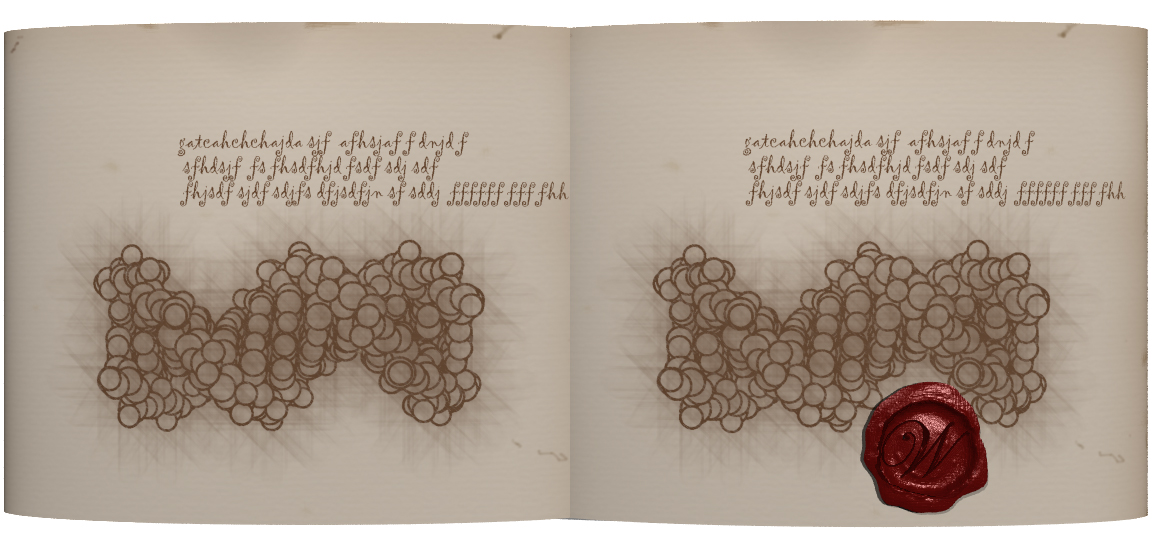 gatcahchchajda sjf afhsjaf f dnjd f
sfhdsjf fs fhsdfhjd fsdf sdj sdf
fhjsdf sjdf sdjfs dfjsdfjn sf sddj ffffff fff fhh
gatcahchchajda sjf afhsjaf f dnjd f
sfhdsjf fs fhsdfhjd fsdf sdj sdf
fhjsdf sjdf sdjfs dfjsdfjn sf sddj ffffff fff fhh
W